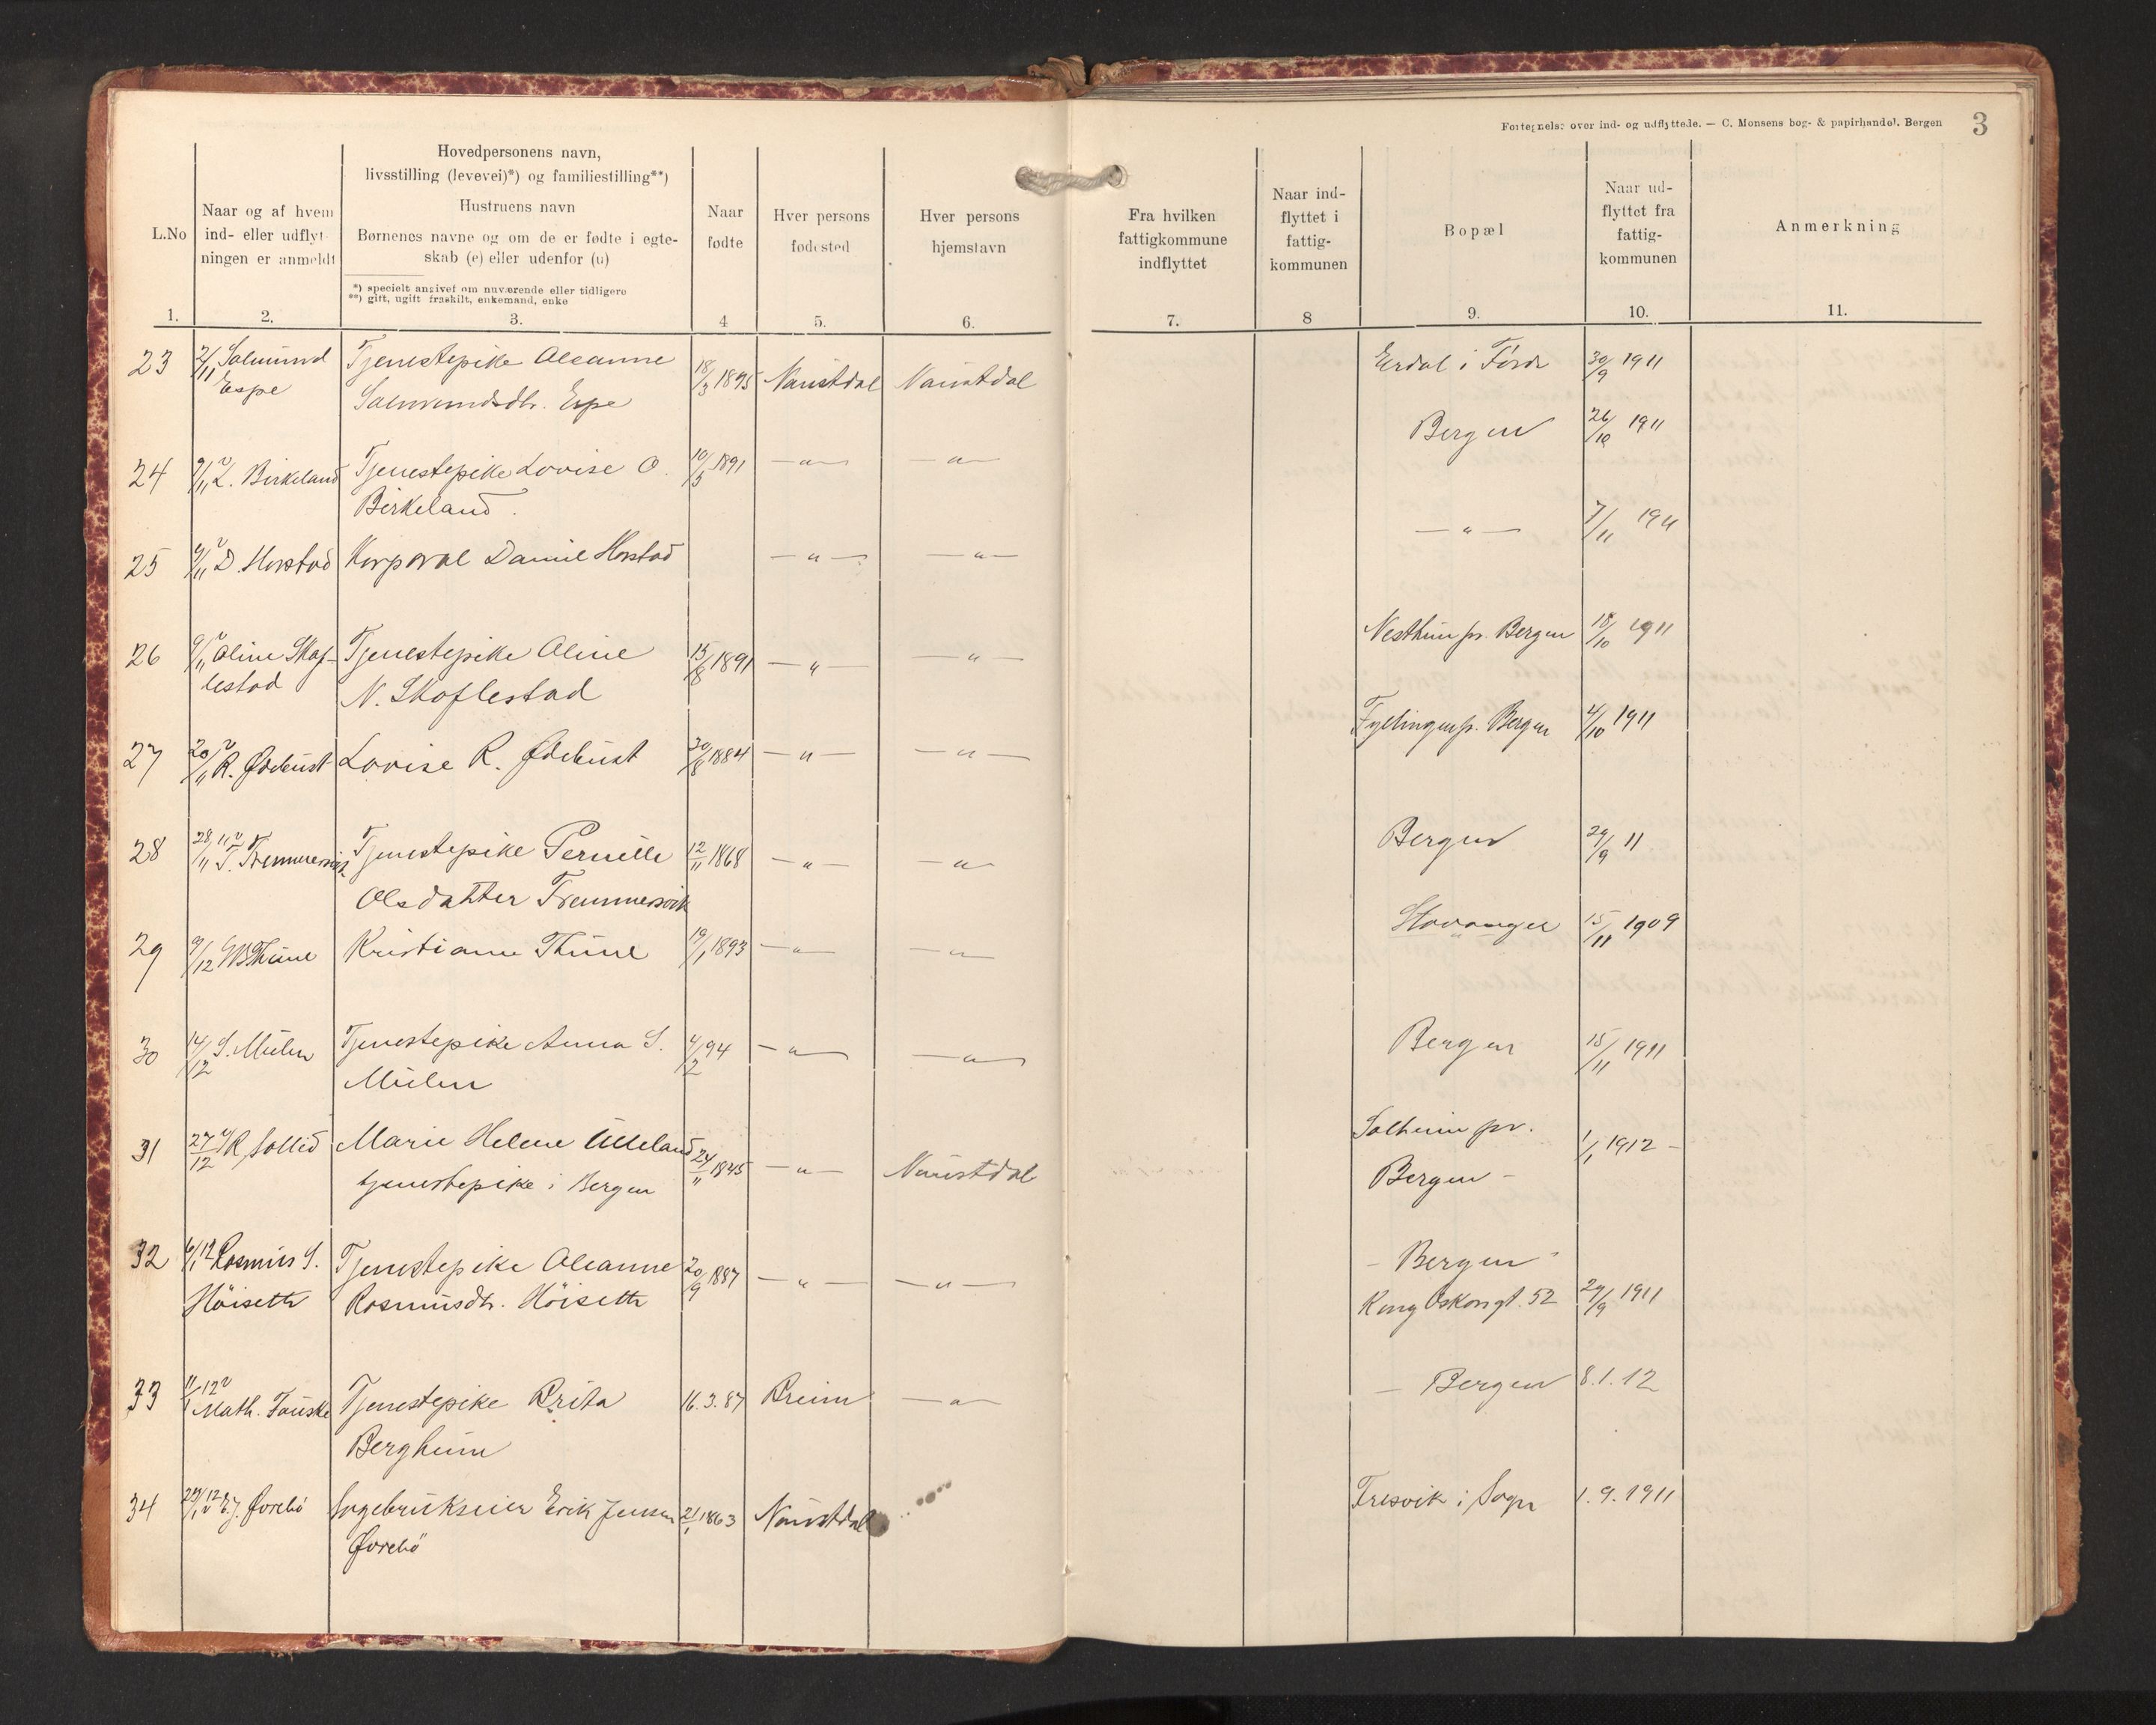 Fortegnelse over ind- og udflyttede. — C. Monsens bog- & papirhandel. Bergen
3
L.No
Naar og af hvem
ind- eller udflyt
ningen er anmeldt
Hovedpersonens navn,
livsstilling (levevei)*) og familiestilling**)
Hustruens navn
Børnenes navne og om de er fødte i egte-
skab (e) eller udenfor (u)
*) specielt angivet om nuværende eller tidligere
**) gift, ugift fraskilt, enkemand, enke
Naar
fødte
Hver persons
fødested
Hver persons
hjemstavn
Fra hvilken
fattigkommune
indflyttet
Naar ind-
flyttet i
fattig-
kommunen
Bopæl
Naar ud-
flyttet fra
fattig-
kommunen
Anmerkning
1. 2. 3. 4 5. 6. 7. 8 9. 10. 11.
23 2/11 Salmund Tjenestepike Oleanne 18/3 1895 Naustdal Naustdal Erdal i Førde 30/9 1911
Espe Salmundsdtr. Espe
24 9/11 L. Birkeland Tjenestepike Lovise O. 10/5 1891 —"— —"— Bergen 26/10 1911
Birkeland.
25 9/11 D. Horstad Korporal Daniel Horstad —"— —"— —"— 7/11 1911
26 9/11 Oline Skaf- Tjenestepike Oline 15/8 1891 —"— —"— Nesttun pr. Bergen 18/10 1911
lestad N. Skaflestad
27 20/11 R. Ødebust Lovise R. Ødebust 30/8 1884 —"— —"— Fyllingen pr. Bergen 4/10 1911
28 28/11 Tjenestepike Pernille 12/11 1868 —"— —"— Bergen 29/9 11
Olsdatter
29 9/12 Thune Kristiane Thune 19/1 1893 —"— —"— Stavanger 15/11 1909
30 14/12 S. Mulen Tjenestepike Anna S. 4/2 94 —"— —"— Bergen 15/11 1911
Mulen
31 27/12 R Sollid Marie Helene Ulleland 24/11 1845 —"— Naustdal Solheim pr. 1/1 1912 –
tjenestepike i Bergen Bergen –
32 6/1 12 Rasmus S. Tjenestepike Oleanne 20/9 1887 —"— —"— – Bergen
Höiseth Rasmusdtr. Höiseth Kong Oskarsgt. 52 29/9 1911
33 11/1 12 Tjenestepike Brita 16.3.87 Breim —"— – Bergen 8.1.12
Math. Fauske Bergheim
34 29/1 12 E.J. Øvrebö Sagebrukseier Erik Jensen 21/1 1863 Naustdal Fresvik i Sogn 1.9.1911
Øvrebö